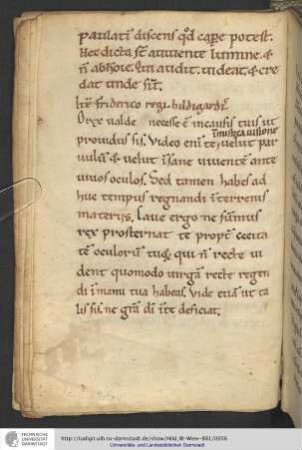 paulatī discens qd̄ capere potest.
Hec dicta sc̄ a uiuente lumine. &
n̄ ab hoīe. Qui audit. uideat. & cre
dat unde sīt.
Itē friderico regi. hildigardī
O rex ualde necesse ē in causis tuis ut
in mistica uisione
prouidus sis. Video eni te, uelut par
uulū & uelut insane uiuentē ante
uiuos oculos. Sed tamen habes ad
huc tempus regnandi in terrenis
materiis. Caue ergo ne sūmus
rex prosternat te propt̄ cecita
tē oculorū tuoꝝ qui n̄ recte ui
dent quomodo uirgā recte regen
di in manu tua habeas. Vide etiā ut ta
lis sis. ne gr̄a dī in te deficiat.
http://tudigit.ulb.tu-darmstadt.de/show/Hild_W-Wien-881/0056
Universitäts- und Landesbibliothek Darmstadt
TECHNISCHE
UNIVERSITÄT
DARMSTADT